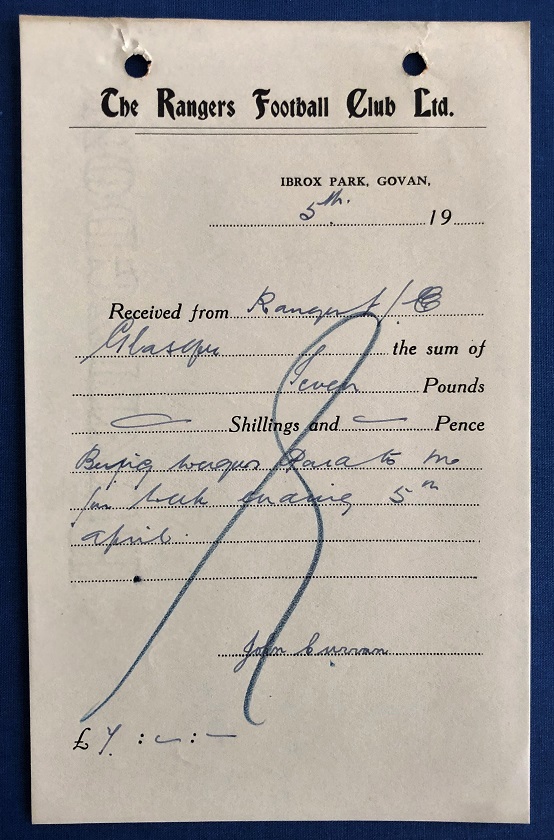 The Rangers Football Club Ltd.
IBROX PARK, GOVAN,
5th. 19
Received from Rangers F/C
Glasgow the sum of
Seven Pounds
Shillings and Pence
Being wages Paid to me
for week ending 5th
April.
John Curran
£ 7 : — : —